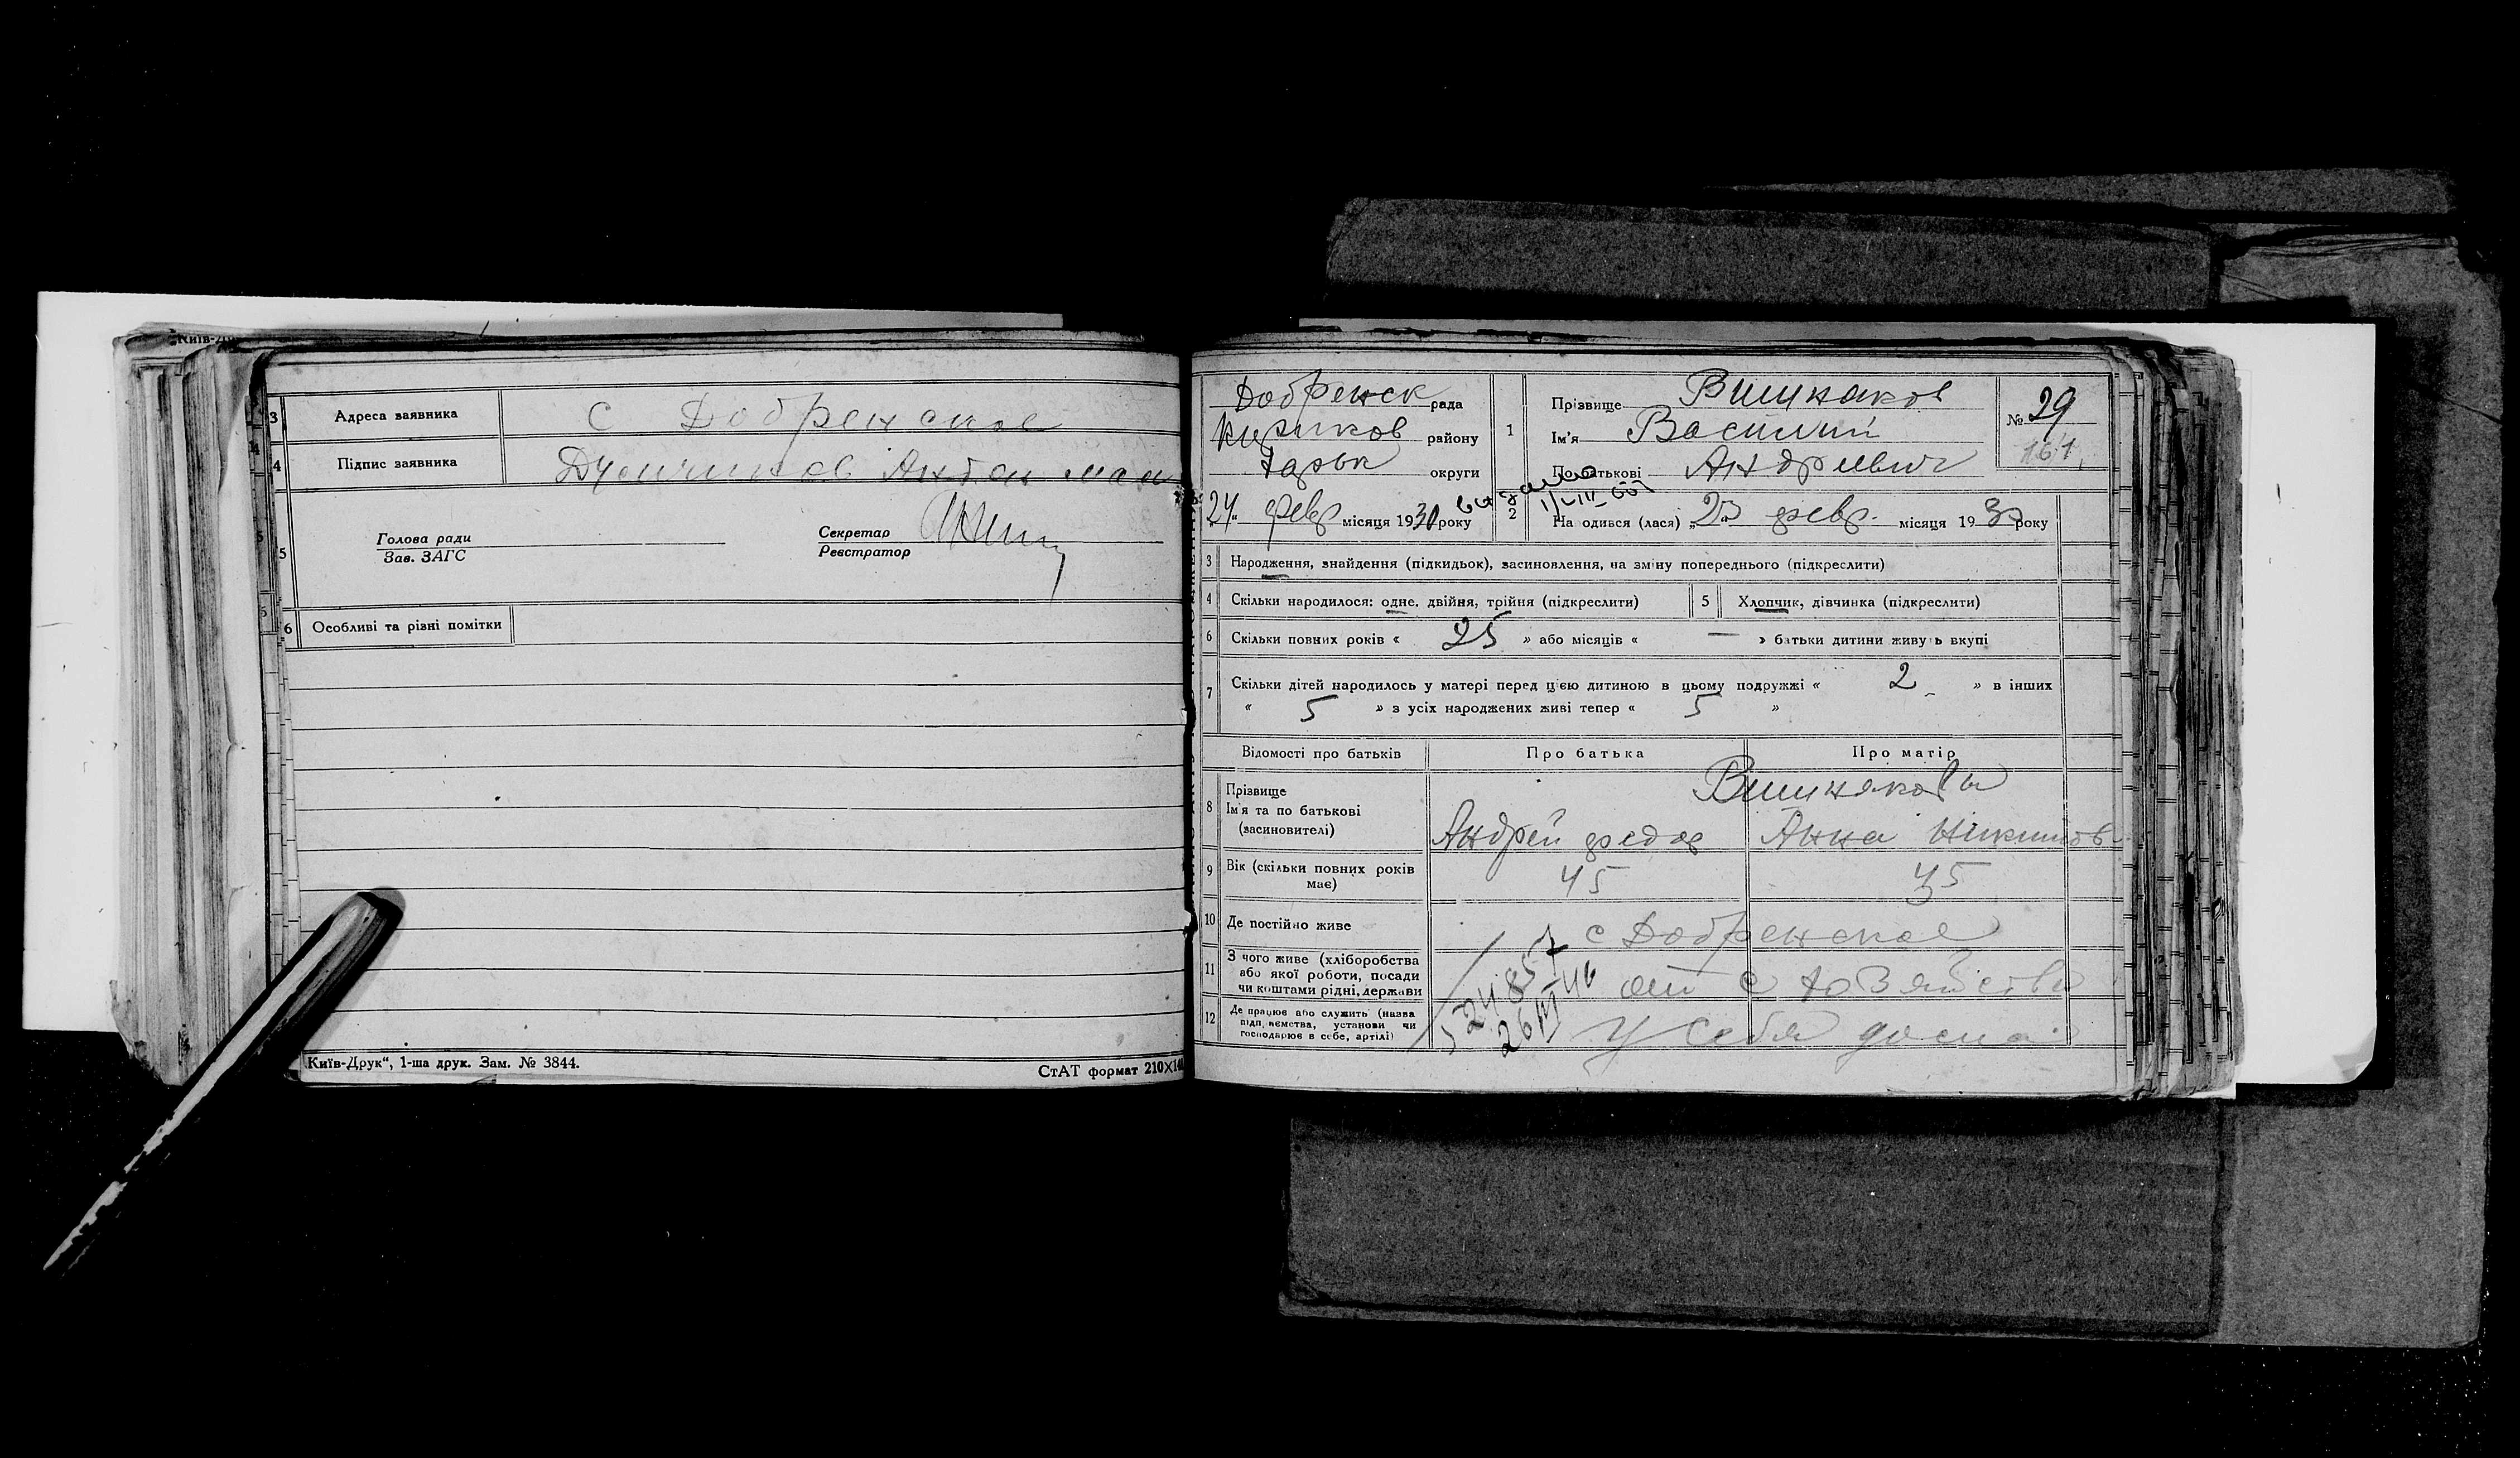 Київ-Др
3 Адреса заявника С Добренское
4 Підпис заявника Антон
5 Голова ради Секретар
Зав. ЗАГС Реєстратор
6 Особливі та різні помітки
Київ-Друк“, 1-ша друк. Зам. № 3844.
СтАТ формат 210×14
Добренск рада
району
Харьк округи
24 февр місяця 1930 року
1 Прізвище Вишняков
Ім'я Василий
По батькові Андреевич
№ 29
161
2 На одився (лася) „ 23 февр. місяця 1930 року
3 Народження, знайдення (підкидьок), засиновлення, на зміну попереднього (підкреслити)
4 Скільки народилося: одне, двійня, трійня (підкреслити) 5 Хлопчик, дівчинка (підкреслити)
6 Скільки повних років « 25 » або місяців « — » батьки дитини живуть вкупі
7 Скільки дітей народилось у матері перед цією дитиною в цьому подружжі « 2 » в інших
« 5 » з усіх народжених живі тепер « 5 »
Відомості про батьків Про батька Про матір
8 Прізвище Вишняковы
Ім'я та по батькові
(засиновителі) Андрей федор Анна Никитов
9 Вік (скільки повних років має) 45 45
10 Де постійно живе с Добренское
11 З чого живе (хліборобства
або якої роботи, посади
чи коштами рідні, держави от с хозяйства
12 Де працює або служить (назва
підприємства, установи чи
господарює в себе, артілі) у себя дома